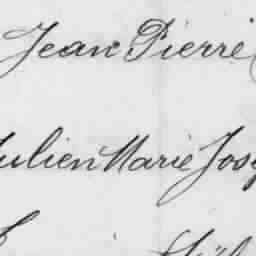 Jean Pierre
Julien Marie Jos